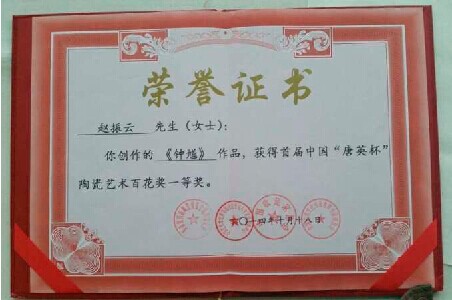 荣誉证书
赵振云 先生（女士）：
你创作的《钟馗》作品，获得首届中国“唐英杯”
陶瓷艺术百花奖一等奖。
二〇一四年十月十八日